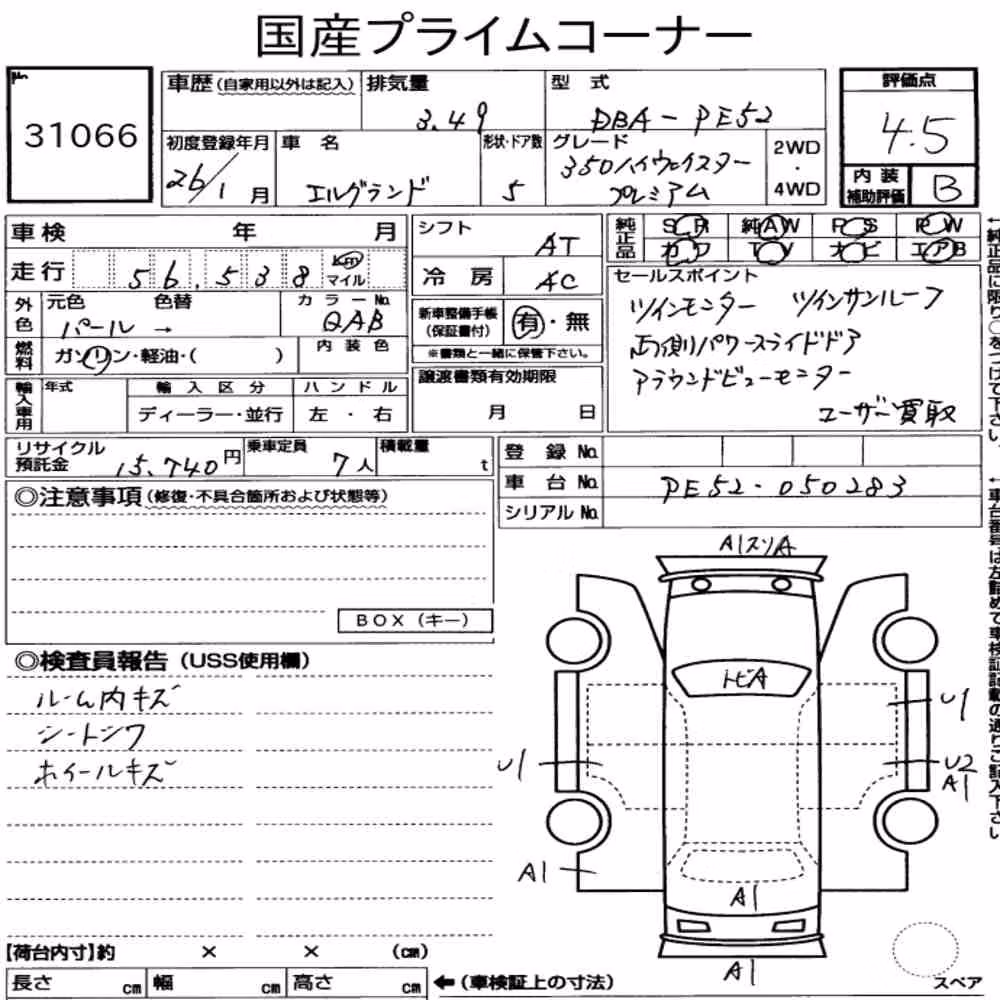 国産プライムコーナー
No.
31066
車歴(自家用以外は記入)
排気量
3.49
型 式
DBA-PE52
評価点
4.5
初度登録年月
26/1月
車 名
エルグランド
形状・ドア数
5
グレード
350ハイウェイスター
プレミアム
2WD
・
4WD
内 装
補助評価
B
車検 年 月
シフト
AT
純正品
SR 純AW PS PW
カワ TV ナビ エアB
走行 56,538 km
マイル
冷 房
AC
セールスポイント
ツインモニター ツインサンルーフ
両側パワースライドドア
アラウンドビューモニター
ユーザー買取
外色
元色 色替
パール →
カラーNo.
QAB
新車整備手帳
(保証書付)
有・無
※書類と一緒に保管下さい。
燃料
ガソリン・軽油・( )
内 装 色
譲渡書類有効期限
月 日
輸入車用
年式
輸 入 区 分
ディーラー・並行
ハ ン ド ル
左 ・ 右
リサイクル
預託金
15,740円
乗車定員
7人
積載量
t
登 録 No.
車 台 No. PE52-050283
シリアルNo.
◎注意事項(修復・不具合箇所および状態等)
BOX(キー)
◎検査員報告(USS使用欄)
ルーム内キズ
シートシワ
ホイールキズ
A1スリA
トビA
U1
U2
A1
U1
A1
A1
A1
【荷台内寸】約 × × (cm)
長さ cm 幅 cm 高さ cm
←(車検証上の寸法)
スペア
←純正品に限り○をつけて下さい。
←車台番号は左詰めで車検証記載の通りご記入下さい